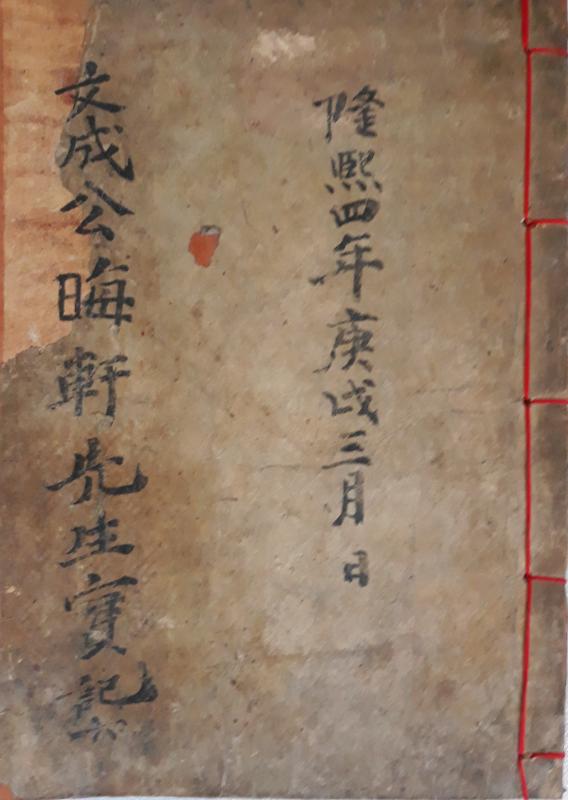 隆熙四年庚戌三月 日
文成公晦軒先生實記六